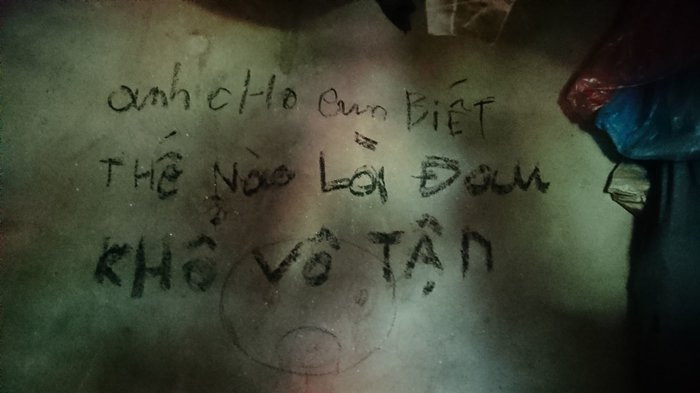 anh cHo em BiẾT
THẾ Nào Là Đau
KHỔ VÔ TẬN